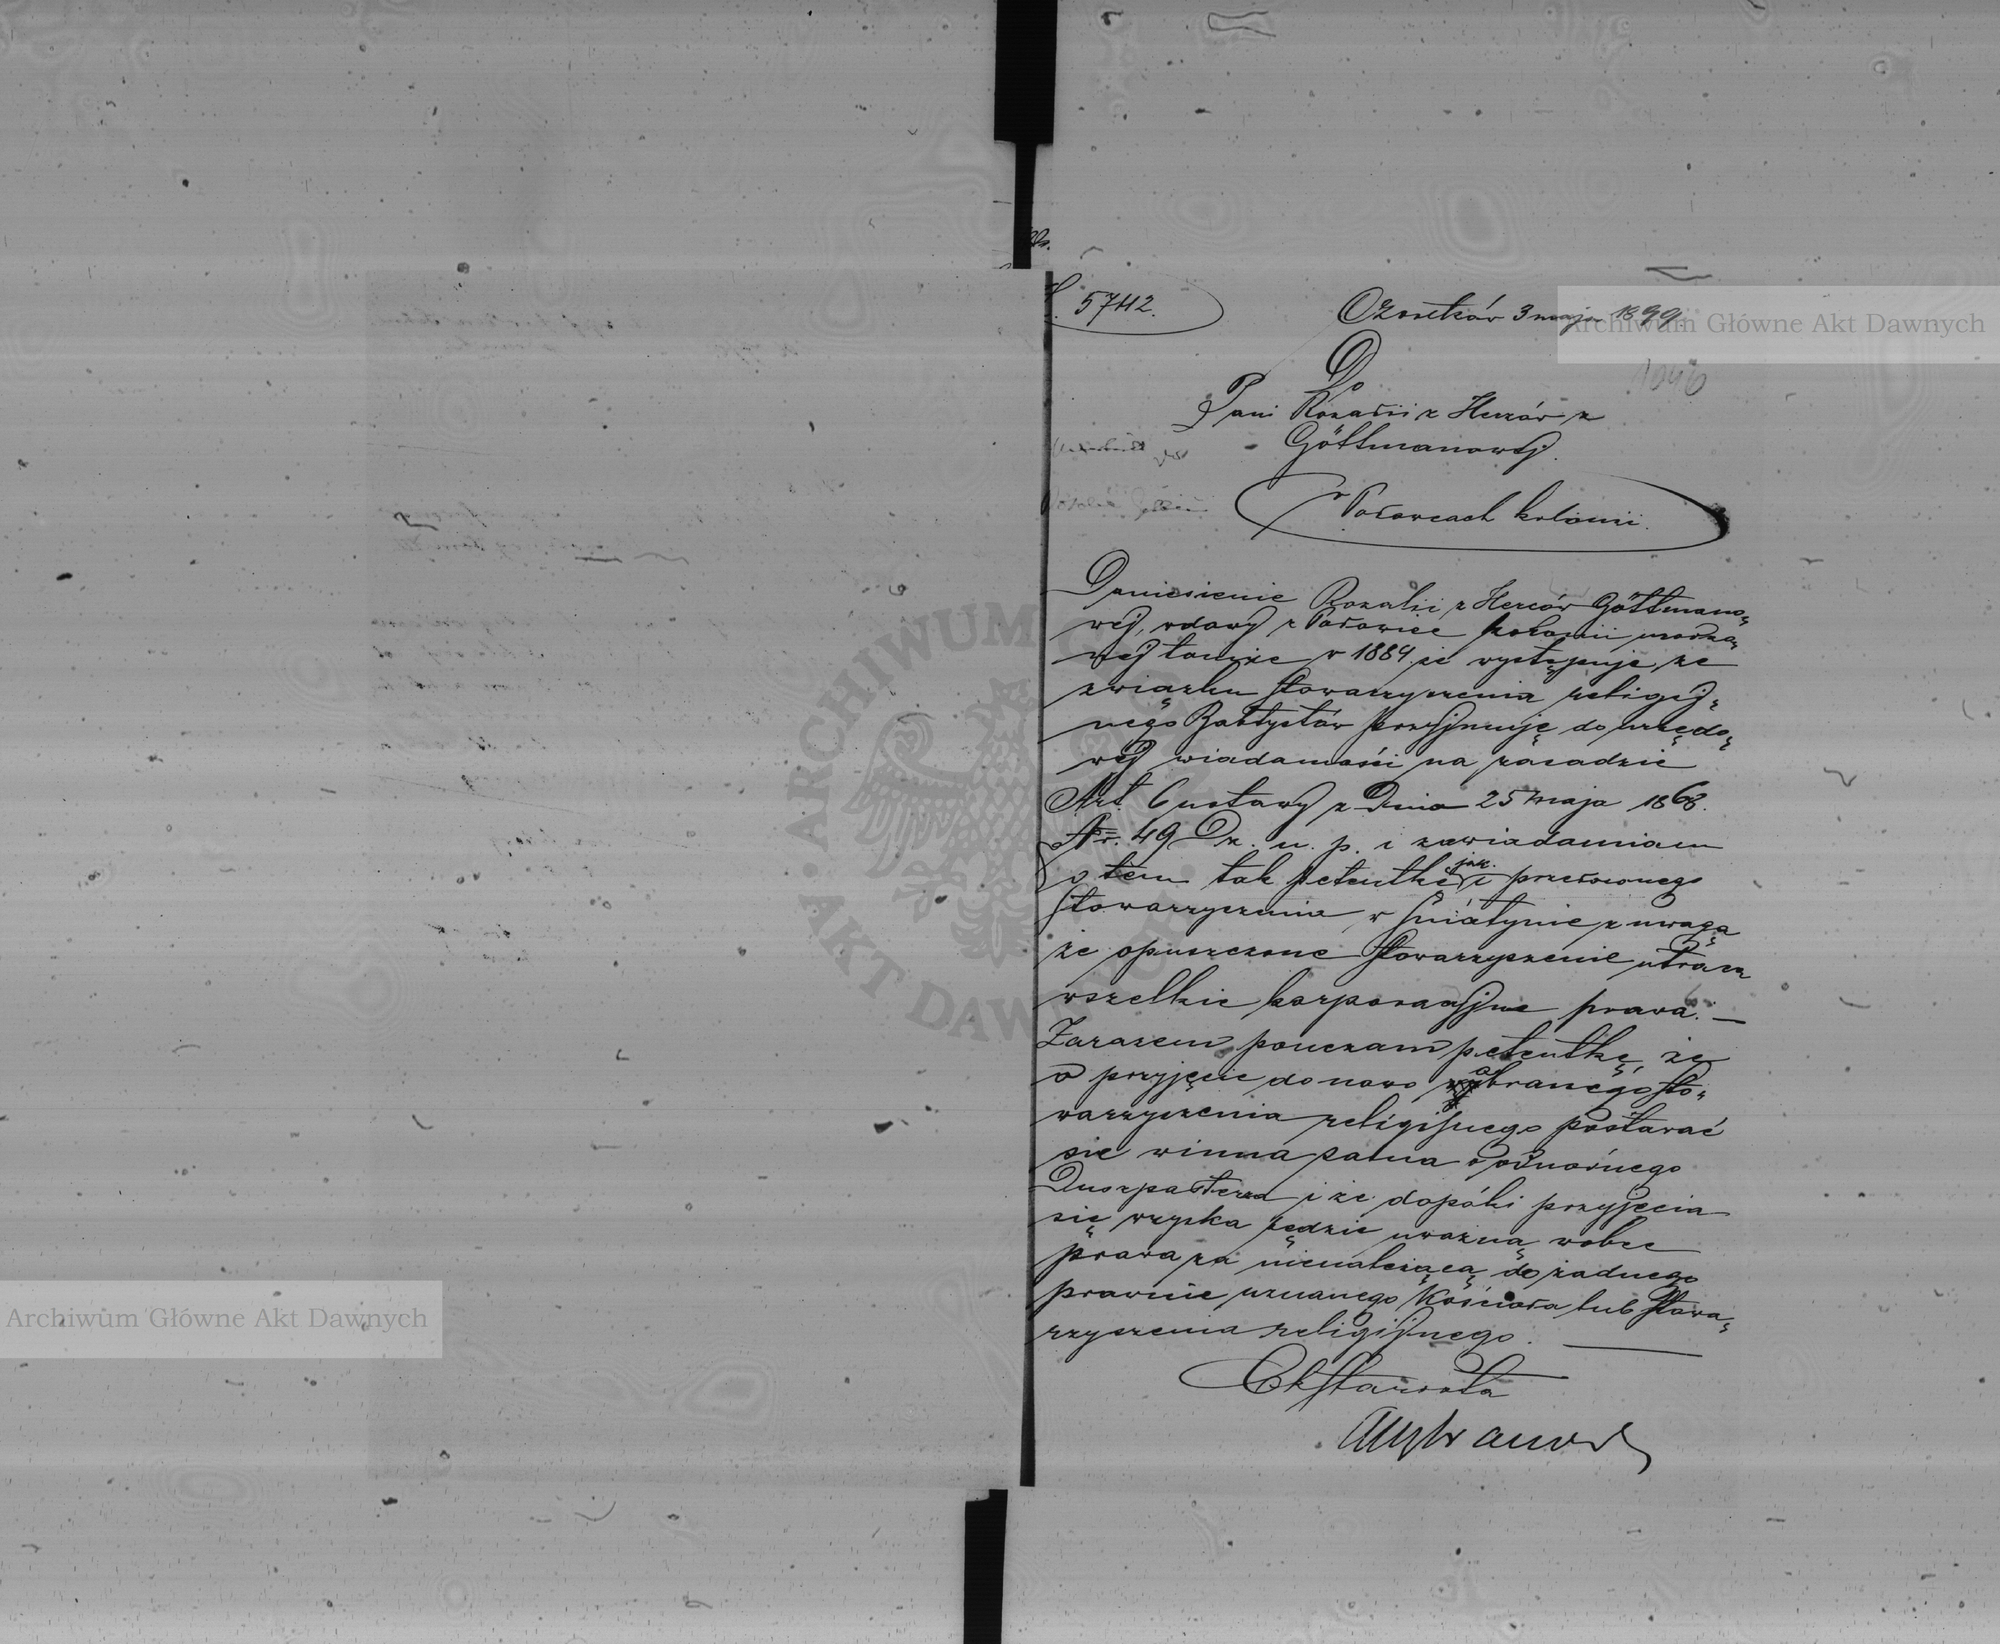 L. 5742.
Ożortków 3 maja 1899.
1046
Do
Pani Rozalii z Herzów z
Göttmanowéj.
w Polowcach kolonii.
Doniesienie Rozalii z Herców Göttmano-
wéj, wdowy z Polowiec kolonii urodzo-
néj tamże w 1884. że występuje ze
związku stowarzyszenia religij-
nego Babtystów przyjmuję do urzędo-
wéj wiadomości na zasadzie
Art. 6 ustawy z Dnia 25 maja 1868.
Nr. 49 Dz. u. p. i zawiadamiam
o tem tak petentkę jak i przełożonego
Stowarzyszenia w Śniatynie z uwagą
że opuszczone Stowarzyszenie utraca
wszelkie korporacyjne prawa. —
Zarazem pouczam petentkę, że
o przyjęcie do nowo obranego sto-
warzyszenia religijnego postarać
się winna sama u odnośnego
Duszpasterza i że dopóki przyjęcia
się uzyska będzie uważną wobec
prawa za nienależącą do żadnego
prawnie uznanego Kościoła lub Stowa-
rzyszenia religijnego. —
Ck Starosta
Archiwum Główne Akt Dawnych
Archiwum Główne Akt Dawnych
ARCHIWUM GŁÓWNE AKT DAWNYCH